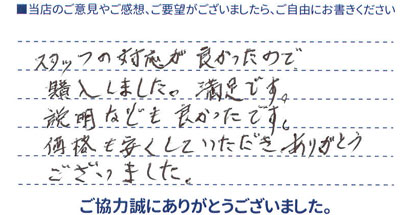 ■当店のご意見やご感想、ご要望がございましたら、ご自由にお書きください
スタッフの対応が良かったので
購入しました。満足です。
説明なども良かったです。
価格も安くしていただき、ありがとう
ございました。
ご協力誠にありがとうございました。